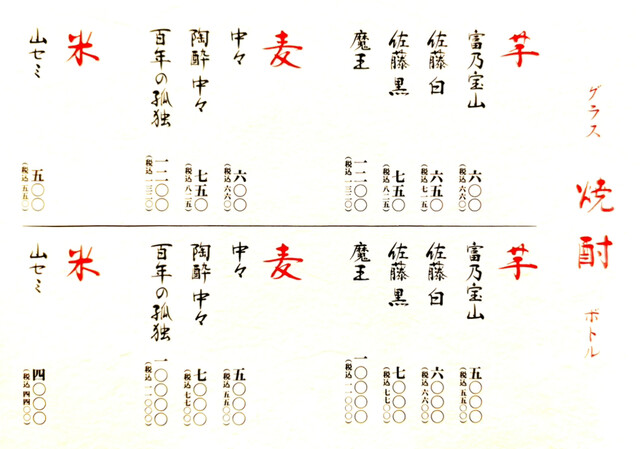 グラス 焼酎 ボトル
芋
富乃宝山 六〇〇
(税込 六六〇)
佐藤 白 六五〇
(税込 七一五)
佐藤 黒 七五〇
(税込 八二五)
魔王 一二〇〇
(税込 一三二〇)
麦
中々 六〇〇
(税込 六六〇)
陶酔 中々 七五〇
(税込 八二五)
百年の孤独 一二〇〇
(税込 一三二〇)
米
山セミ 五〇〇
(税込 五五〇)
芋
富乃宝山 五〇〇〇
(税込 五五〇〇)
佐藤 白 六〇〇〇
(税込 六六〇〇)
佐藤 黒 七〇〇〇
(税込 七七〇〇)
魔王 一〇〇〇〇
(税込 一一〇〇〇)
麦
中々 五〇〇〇
(税込 五五〇〇)
陶酔 中々 七〇〇〇
(税込 七七〇〇)
百年の孤独 一〇〇〇〇
(税込 一一〇〇〇)
米
山セミ 四〇〇〇
(税込 四四〇〇)